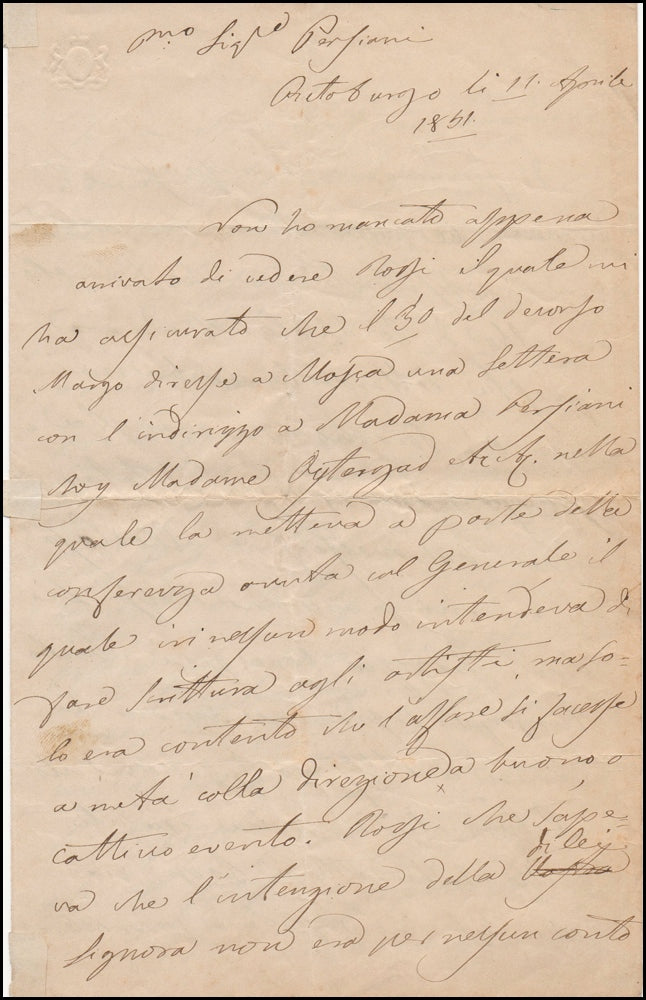 Pmo Sigre Persiani
Pietoburgo li 11. Aprile
1851.
Non ho mancato appena
arrivato di vedere Rossi il quale mi
ha assicurato che l 30 del decorso
Marzo diresse a Mosca una lettera
con l'indirizzo a Madama Persiani
Madame &c &c. nella
quale la metteva a parte della
conferenza avuta col Generale il
quale in nessun modo intendeva di
fare scrittura agli artisti, ma so-
lo era contento che l'affare si facesse
a metà colla direzione a buono o
cattivo evento. Rossi che sape-
va che l'intenzione della di lei
Signora non era per nessun conto